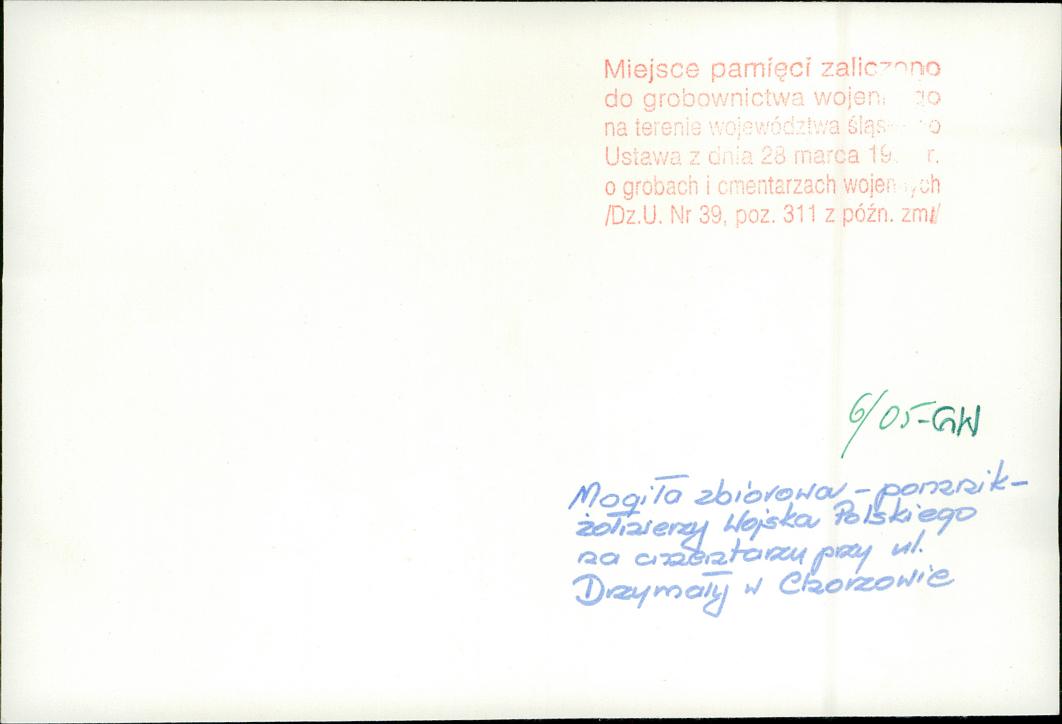 Miejsce pamięci zaliczono
do grobownictwa
na terenie województwa
Ustawa z dnia 28 marca
o grobach i cmentarzach
/Dz.U. Nr 39, poz. 311 z późn. zm/
6/05-GW
Mogiła zbiorowa - pomnik -
żołnierzy Wojska Polskiego
na cmentarzu przy ul.
Drzymały w Chorzowie